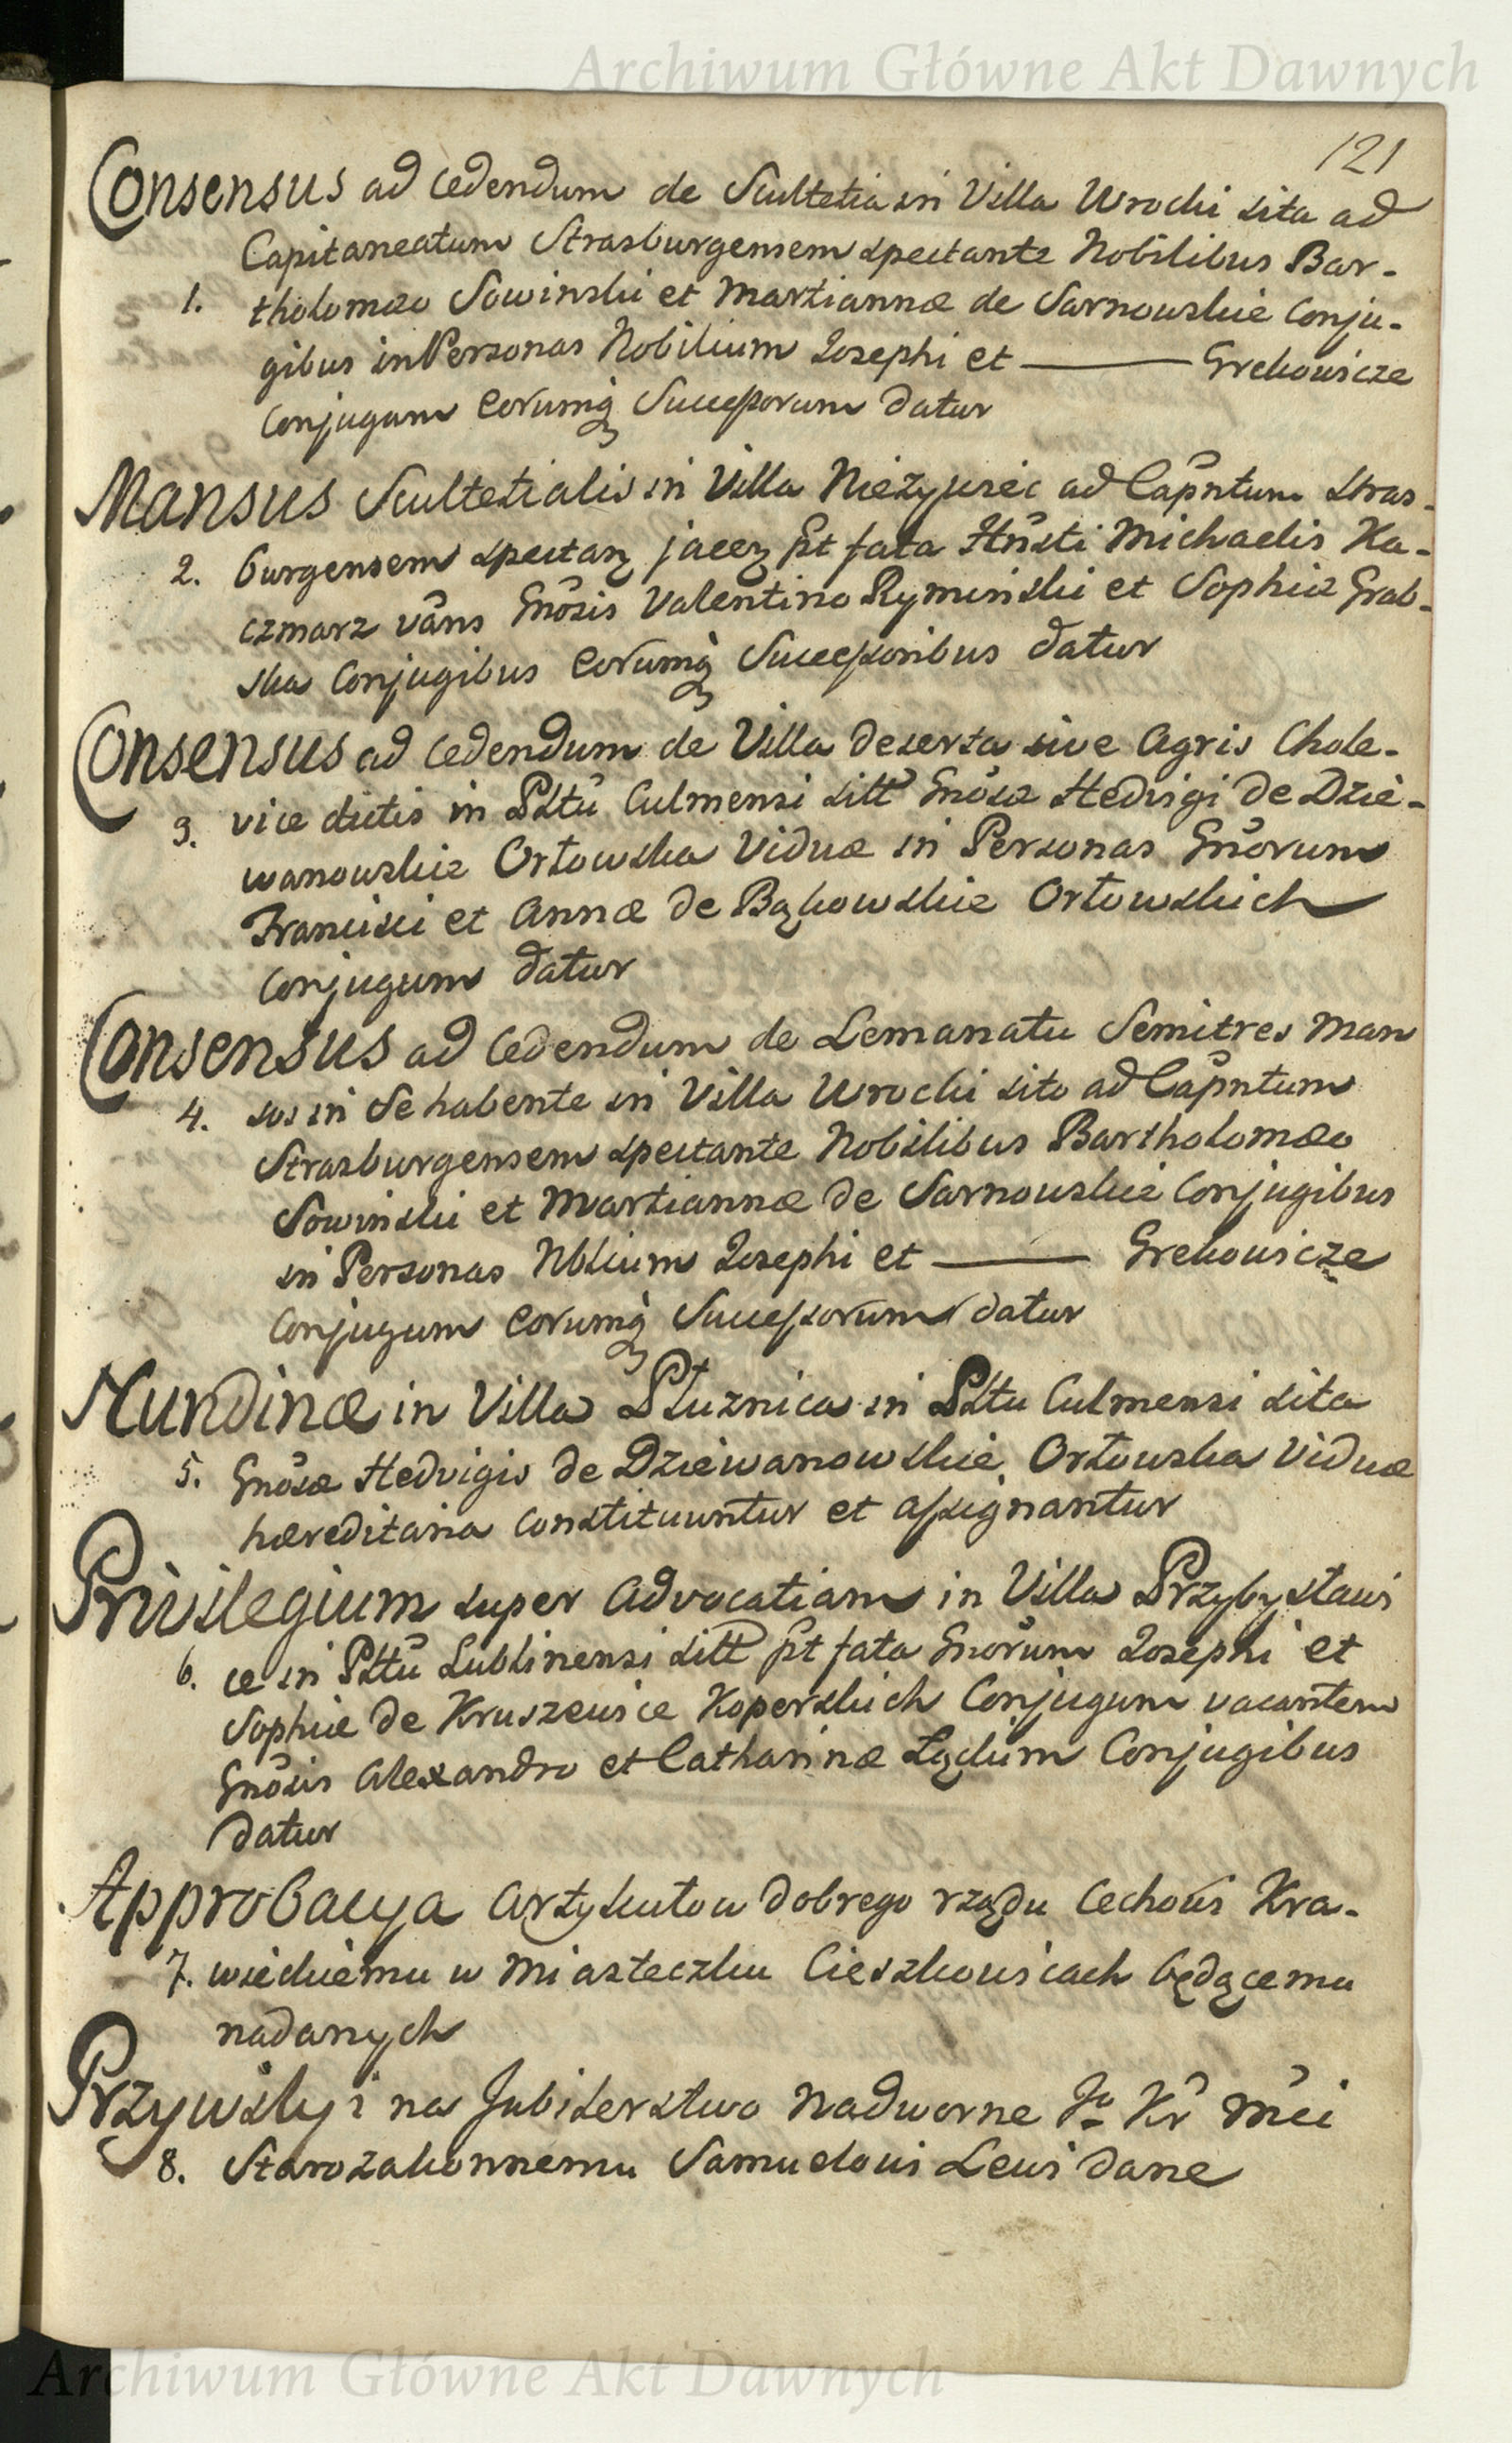 Archiwum Główne Akt Dawnych
121
Consensus ad cedendum de Scultetia in Villa Wrocki sita ad
Capitaneatum Strasburgensem spectante Nobilibus Bar-
1. tholomæo Sowinski et Martiannæ de Sarnowskie Conju-
gibus in Personas Nobilium Josephi et ——— Grekowicze
Conjugum eorumq Successorum datur
Mansus Scultetialis in Villa Niezywiec ad Capntum Stras-
2. burgensem spectan jacen pt fata Hnsti Michaelis Ka-
czmarz vans Gnosis Valentino Ryminski et Sophiæ Grab-
ska Conjugibus eorumq Successoribus datur
Consensus ad cedendum de Villa deserta sive Agris Chole-
3. vice dictis in Pltu Culmensi sitt Gnosæ Hedvigi de Dzie-
wanowskie Orłowska Viduæ in Personas Gnorum
Francisci et Annæ de Bąkowskie Orłowskich
Conjugum datur
Consensus ad Cedendum de Lemanatu Semitres Man
4. sos in Se habente in Villa Wrocki sito ad Capntum
Strasburgensem spectante Nobilibus Bartholomæo
Sowinski et Martiannæ de Sarnowskie Conjugibus
in Personas Nblium Josephi et ——— Grekowicze
Conjugum eorumq Successorum datur
Nundinæ in Villa Płuznica in Pltu Culmensi sita
5. Gnosæ Hedvigis de Dziewanowskie Orłowska Viduæ
hæreditaria constituuntur et assignantur
Privilegium super Advocatiam in Villa Przybysławi
6. ce in Pltu Lublinensi sitt pt fata Gnorum Josephi et
Sophiæ de Kruszewice Koperskich Conjugum vacantem
Gnosis Alexandro et Catharinæ Conjugibus
datur
Approbacya Artykułow dobrego rządu Cechowi Kra-
7. wieckiemu w Miasteczku Cieszkowicach będącemu
nadanych
Przywiley i na Jubilerstwo Nadworne Jo Kr Mci
8. Starozakonnemu Samuelowi Lewi dane
Archiwum Główne Akt Dawnych